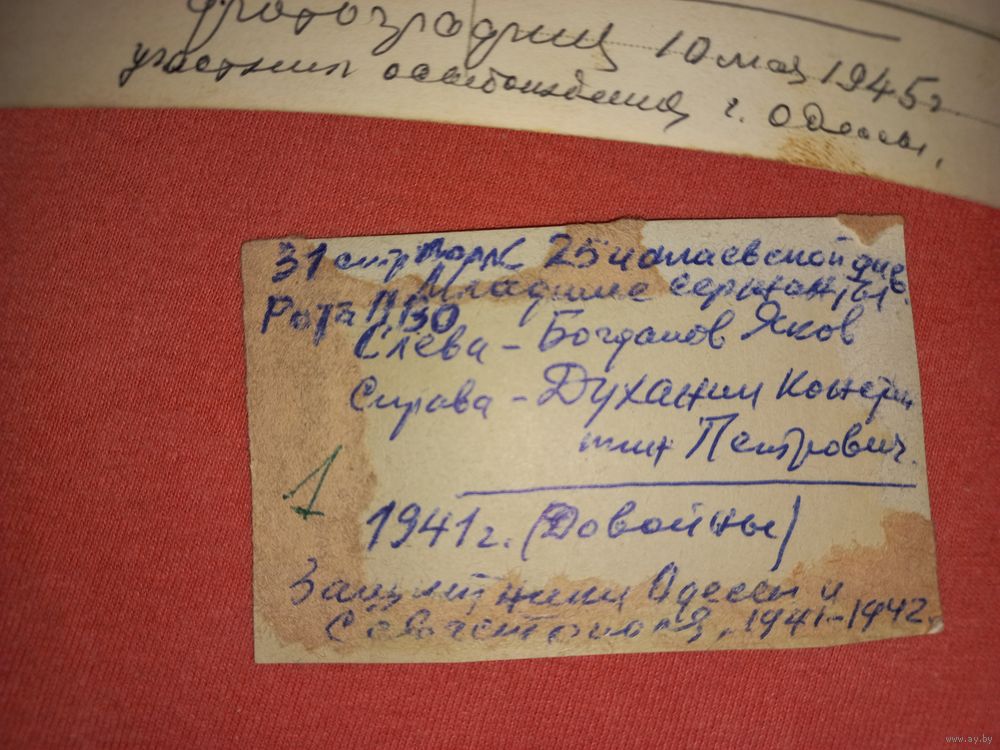 фотография 10 мая 1945г.
участник освобождения г. Одессы,
31 стр 25 чапаевской див.
Младшие сержанты
Рота ПВО
Слева - Богданов Яков
Справа - Духанин Констан
тин Петрович.
1
1941г. (Довойны)
Защитники Одессы и
Севастополя, 1941-1942.
www.ay.by